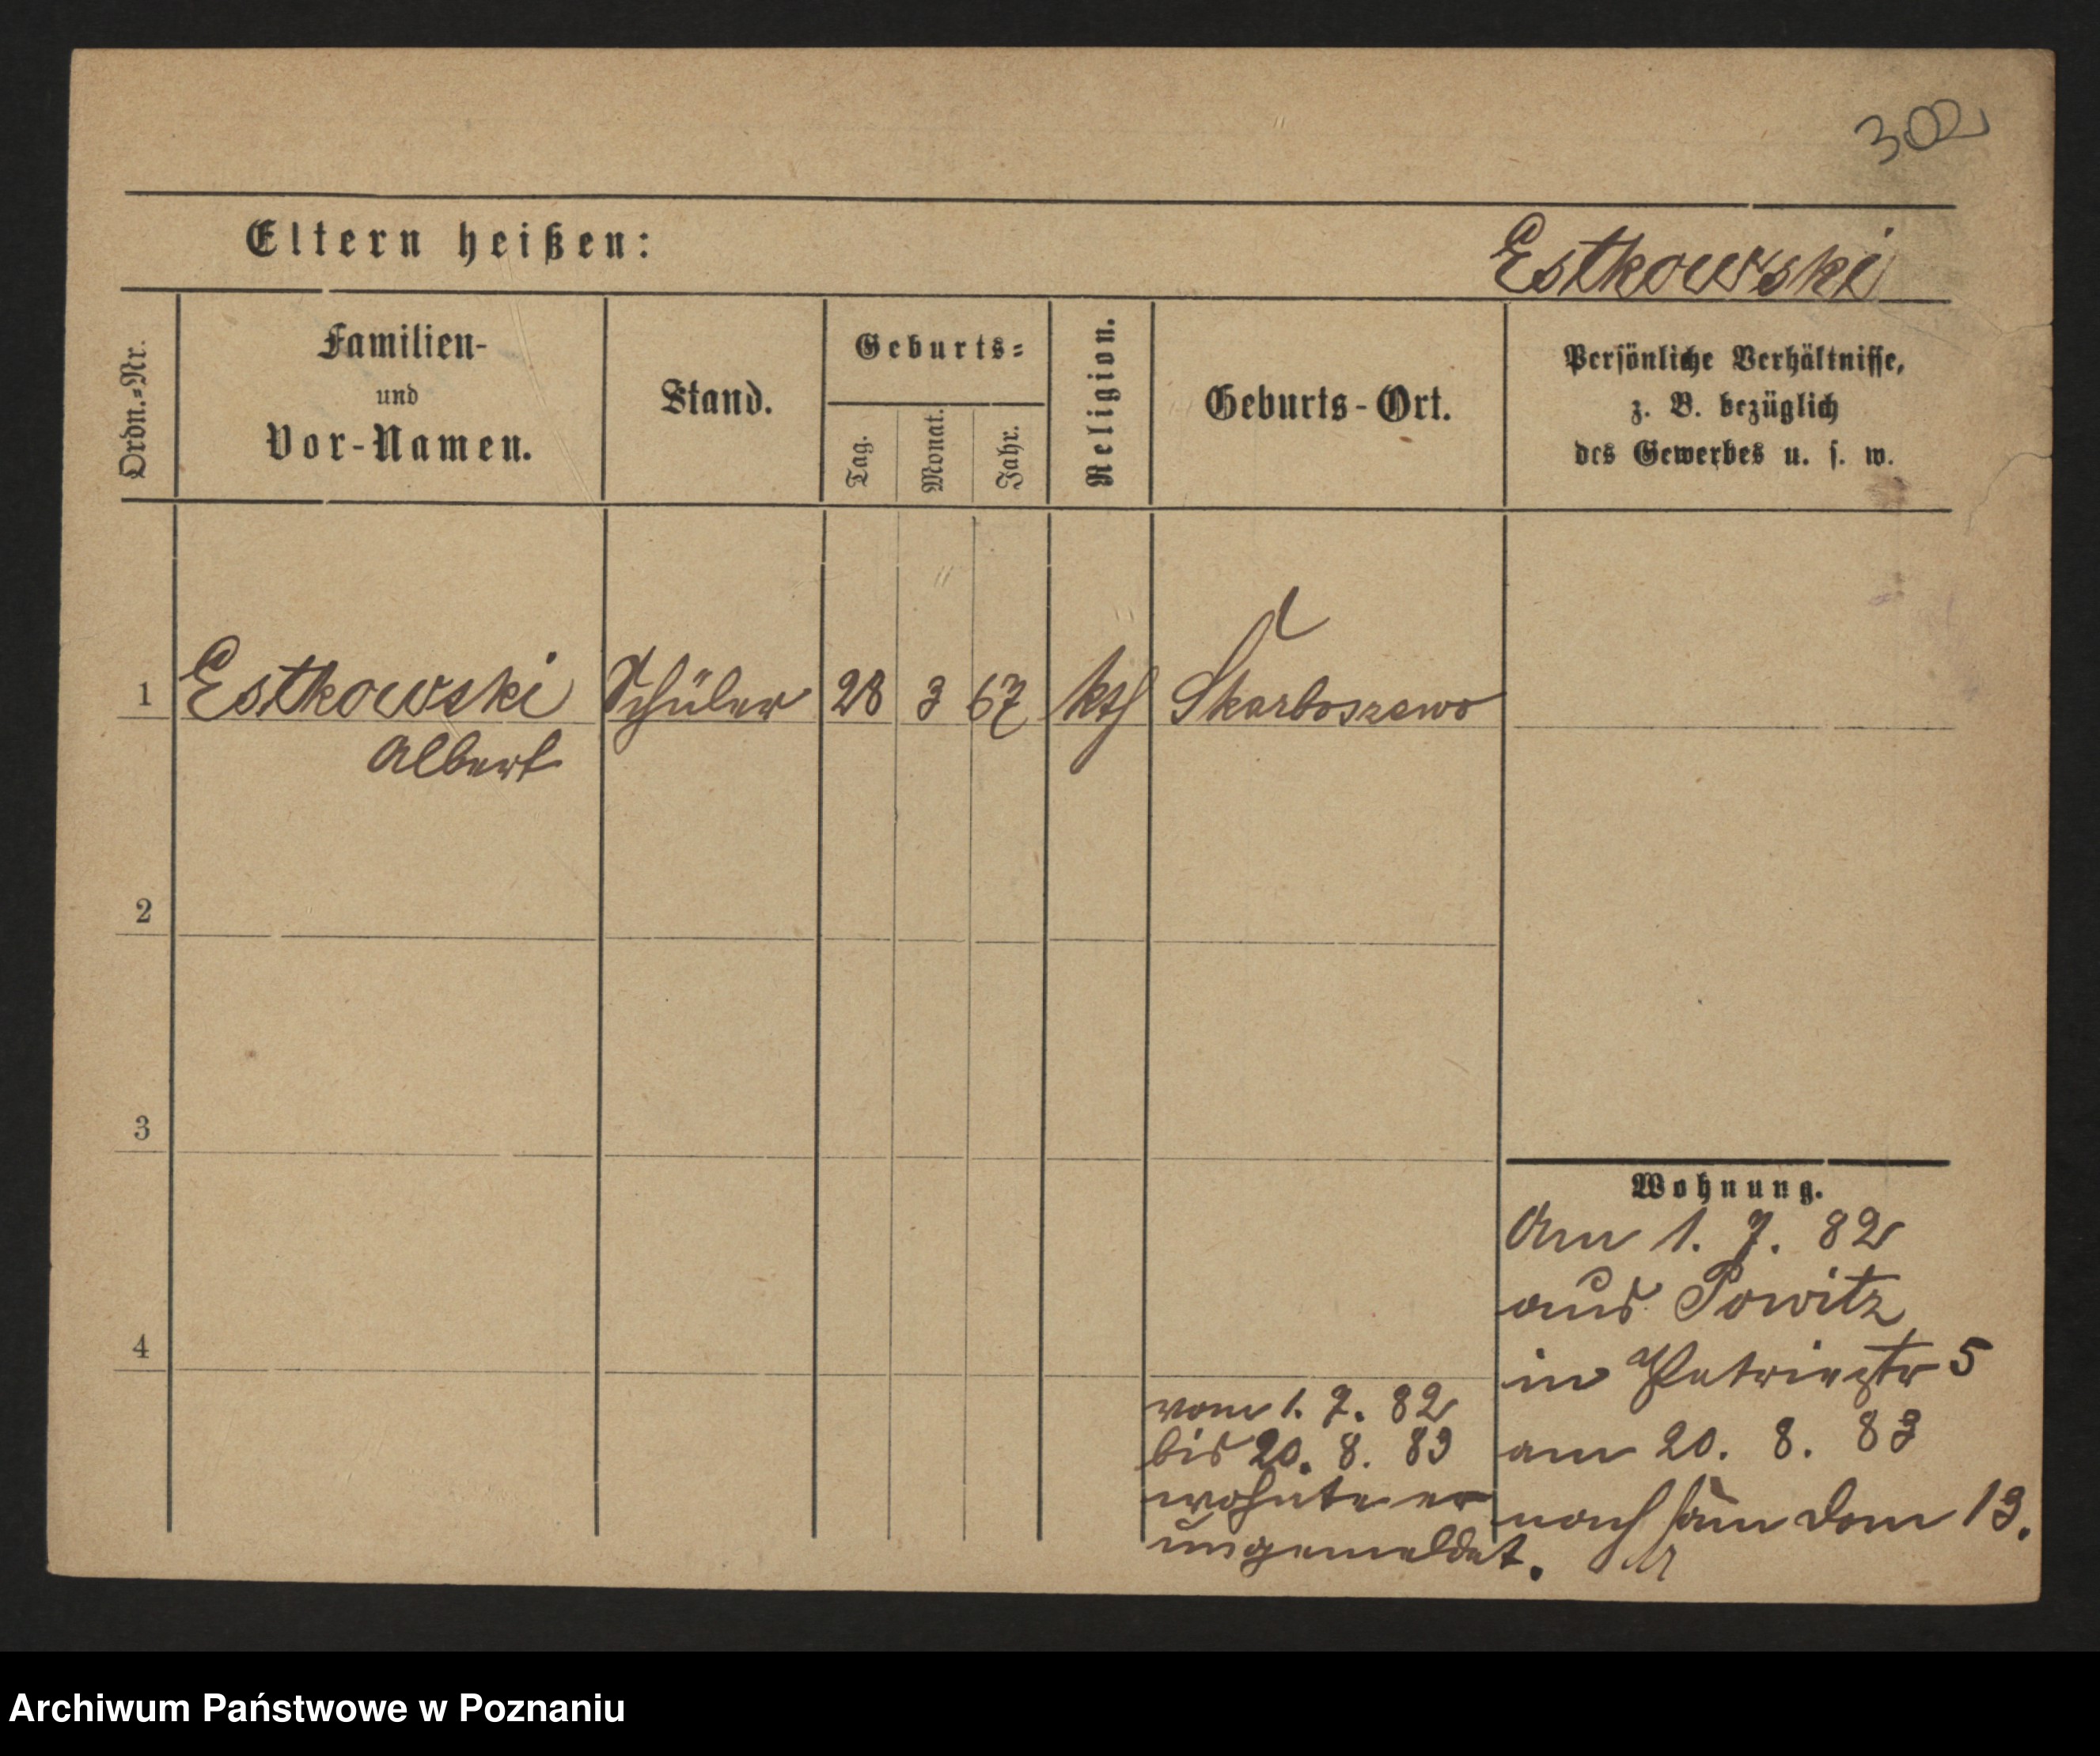 302
Eltern heißen:
Estkowski
Ordn.-Nr.
Familien-
und
Vor-Namen.
Stand.
Geburts-
Tag.
Monat.
Jahr.
Religion.
Geburts-Ort.
Persönliche Verhältnisse,
z. B. bezüglich
des Gewerbes u. s. w.
1 Estkowski Schüler 28 3 67 kth Skarboszewo
Albert
2
3
4
Wohnung.
Am 1. 7. 82
aus Powitz
in 5
am 20. 8. 83
nach dom 13.
vom 1. 7. 82
bis 20. 8. 83
wohnte er
ungemeldet.
Archiwum Państwowe w Poznaniu